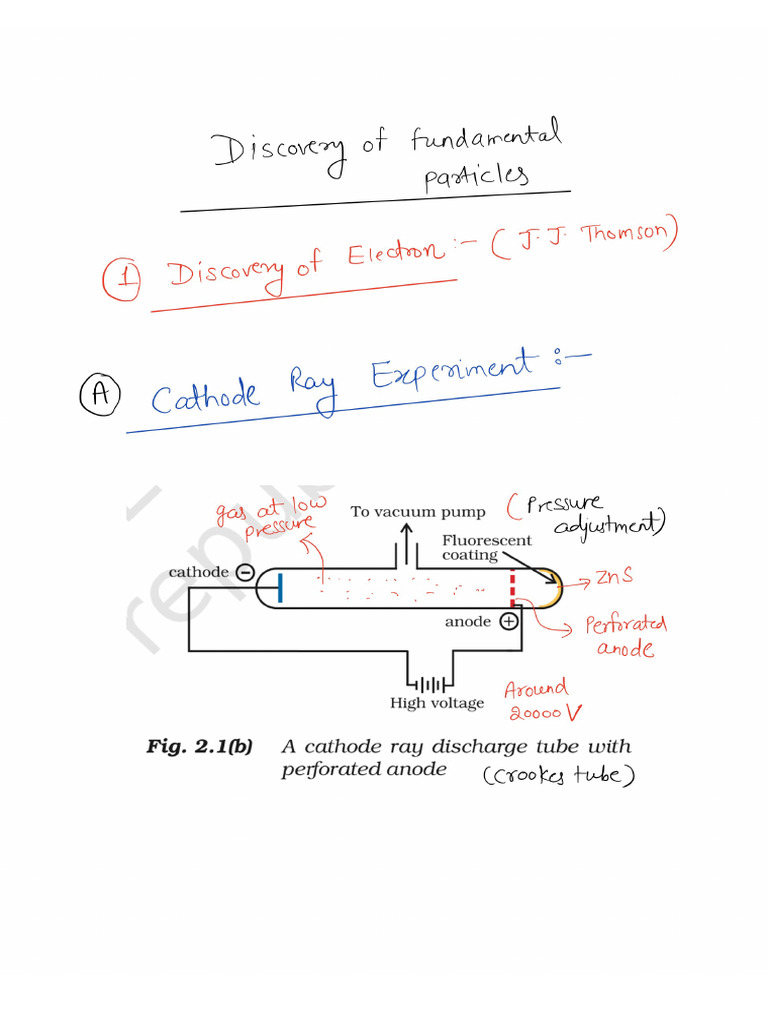 Discovery of fundamental
particles
① Discovery of Electron :- (J.J. Thomson)
Ⓐ Cathode Ray Experiment :-
gas at low
pressure
To vacuum pump
(Pressure
adjustment)
Fluorescent
coating
cathode
−
ZnS
anode
+
Perforated
anode
High voltage
Around
20000 V
Fig. 2.1(b) A cathode ray discharge tube with
perforated anode (Crookes tube)
repu